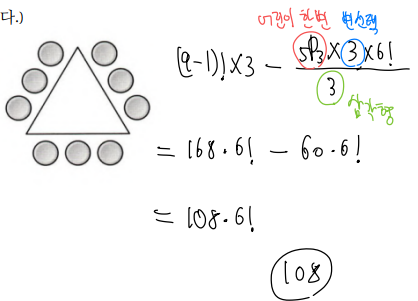 다.)
어린이 한변 변선택
(9-1)! × 3 - 5P3 × 3 × 6! / 3
삼각형
= 168 · 6! - 60 · 6!
= 108 · 6!
108